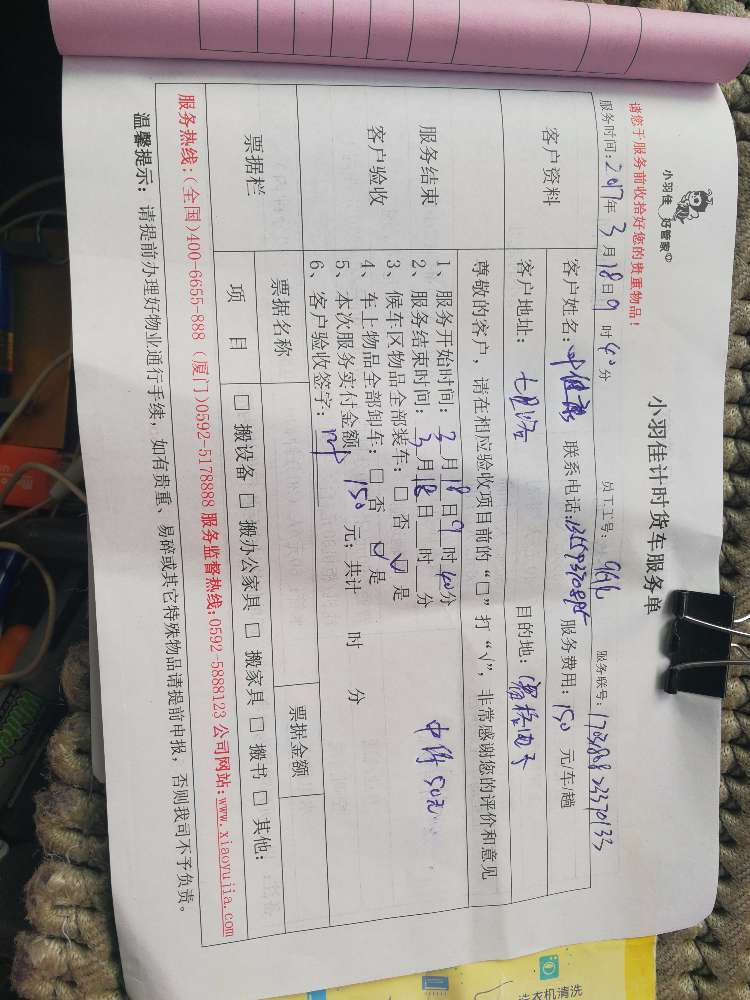 小羽佳 好管家
小羽佳计时货车服务单
请您于服务前收拾好您的贵重物品！
员工工号：
服务联号：
服务时间：2017年 3月18日9时40分
客户资料
客户姓名： 联系电话： 服务费用：150元/车/趟
客户地址： 目的地：
尊敬的客户，请在相应验收项目前的“□”打“√”，非常感谢您的评价和意见
服务结束
客户验收
1、服务开始时间：3月18日9时40分
2、服务结束时间：3月18日 时 分
3、候车区物品全部装车：□ 否 □ 是
4、车上物品全部卸车：□ 否 □ 是
5、本次服务实付金额 150 元；共计 时 分
6、客户验收签字：
票据栏
票据名称
票据金额
项 目
□ 搬设备 □ 搬办公家具 □ 搬家具 □ 搬书 □ 其他：
服务热线：(全国)400-6655-888 (厦门)0592-5178888 服务监督热线:0592-5888123 公司网站:www.xiaoyujia.com
温馨提示：请提前办理好物业通行手续，如有贵重、易碎或其它特殊物品请提前申报，否则我司不予负责。
衣机清洗